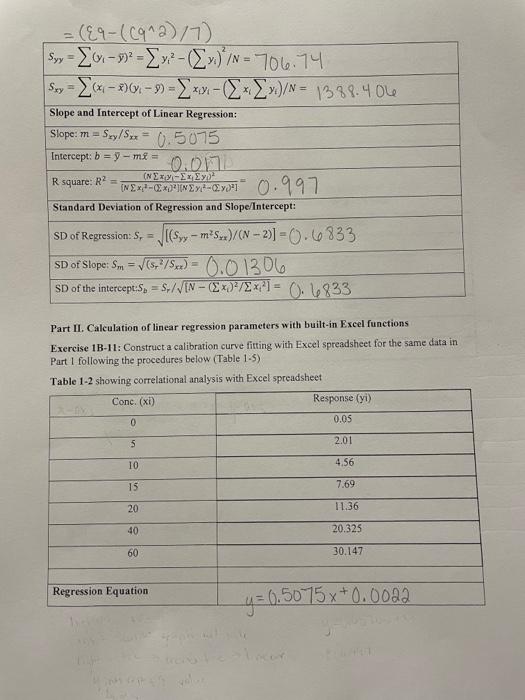 = (E9-(C9^2)/7)
Syy = ∑(yi − ȳ)² = ∑yi² − (∑yi)²/N = 706.74
Sxy = ∑(xi − x̄)(yi − ȳ) = ∑xiyi − (∑xi∑yi)/N = 1388.406
Slope and Intercept of Linear Regression:
Slope: m = Sxy/Sxx = 0.5075
Intercept: b = ȳ − mx̄ = 0.0171
R square: R² = (N∑xiyi−∑xi∑yi)² / [N∑xi²−(∑xi)²][N∑yi²−(∑yi)²] = 0.997
Standard Deviation of Regression and Slope/Intercept:
SD of Regression: Sr = √[(Syy − m²Sxx)/(N − 2)] = 0.6833
SD of Slope: Sm = √(sr²/Sxx) = 0.01306
SD of the intercept:Sb = Sr/√[N − (∑xi)²/∑xi²] = 0.6833
Part II. Calculation of linear regression parameters with built-in Excel functions
Exercise 1B-11: Construct a calibration curve fitting with Excel spreadsheet for the same data in
Part 1 following the procedures below (Table 1-5)
Table 1-2 showing correlational analysis with Excel spreadsheet
Conc. (xi) Response (yi)
0 0.05
5 2.01
10 4.56
15 7.69
20 11.36
40 20.325
60 30.147
Regression Equation y=0.5075x+0.0022